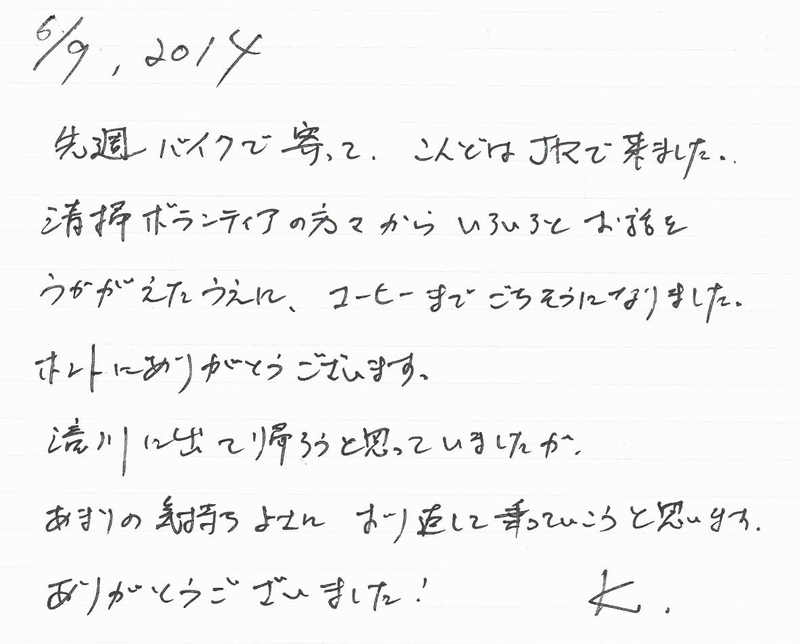 6/9, 2014
先週 バイクで 寄って、こんどは JRで 来ました。
清掃ボランティアの方々から いろいろと お話を
うかがえたうえに、コーヒーまで ごちそうになりました。
ホントにありがとうございます。
川に出て帰ろうと思っていましたが、
あまりの気持ちよさに おり直して乗っていこうと思います。
ありがとうございました!
K.